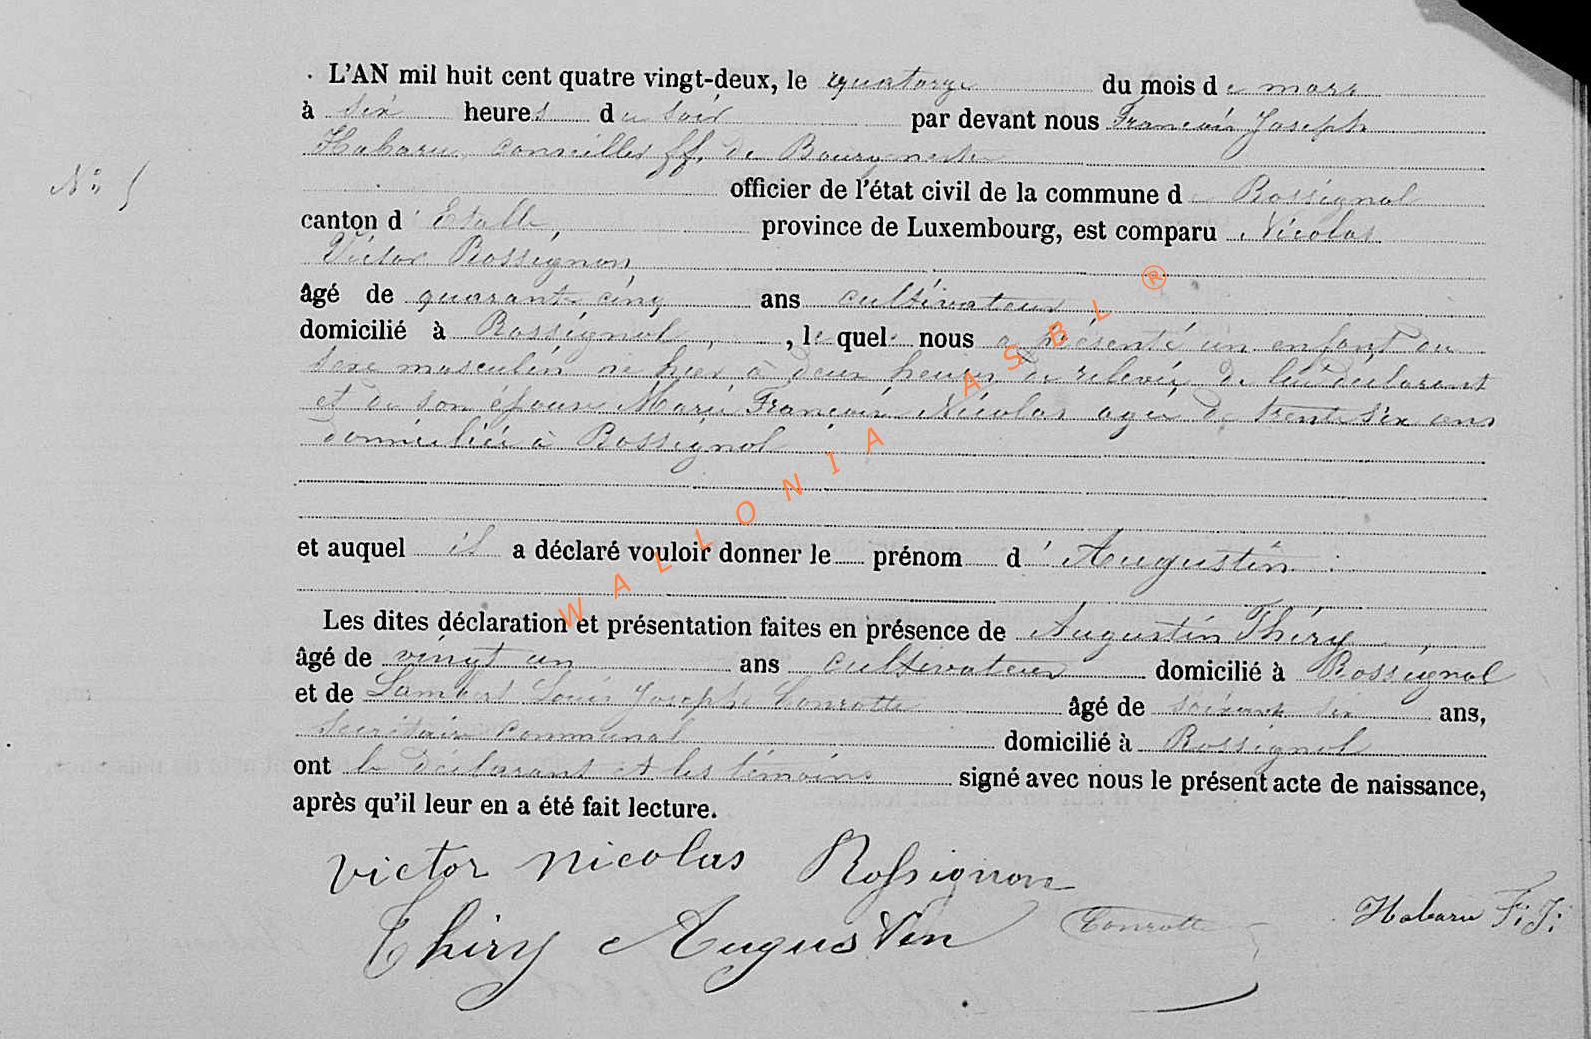 L'AN mil huit cent quatre vingt-deux, le quatorze du mois de mars
à six heures du soir par devant nous François Joseph
Habaru, conseiller ff. de Bourgmestre
N° 5
officier de l'état civil de la commune de Rossignol
canton d'Etalle, province de Luxembourg, est comparu Nicolas
Victor Rossignon,
âgé de quarante cinq ans cultivateur
domicilié à Rossignol, lequel nous a présenté un enfant du
sexe masculin né hier à deux heures de relevée, de lui déclarant
et de son épouse Marie Françoise Nicolas agée de trente six ans
domiciliée à Rossignol
et auquel il a déclaré vouloir donner le prénom d'Augustin.
Les dites déclaration et présentation faites en présence de Augustin Thiry,
âgé de vingt un ans cultivateur domicilié à Rossignol
et de Lambert Louis Joseph Conrotte âgé de soixante six ans,
secrétaire communal domicilié à Rossignol
ont le déclarant et les témoins signé avec nous le présent acte de naissance,
après qu'il leur en a été fait lecture.
Victor Nicolas Rossignon
Thiry Augustin Conrotte Habaru F. J.
WALLONIA ASBL ®